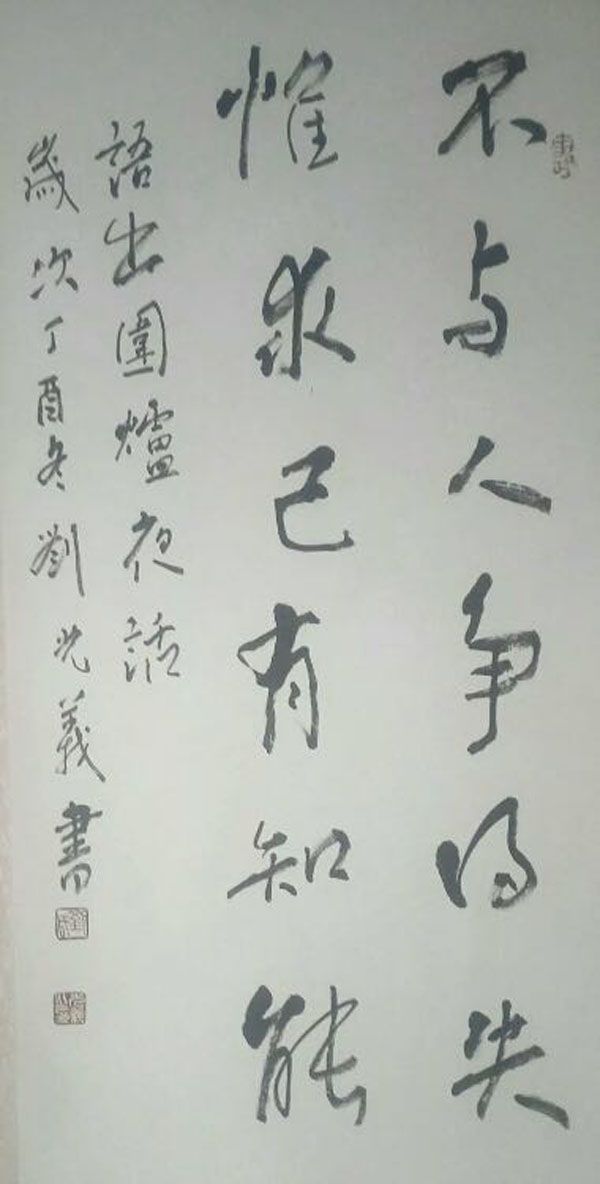 不与人争得失
惟求己有知能
語出圍爐夜話
歲次丁酉冬劉光義書